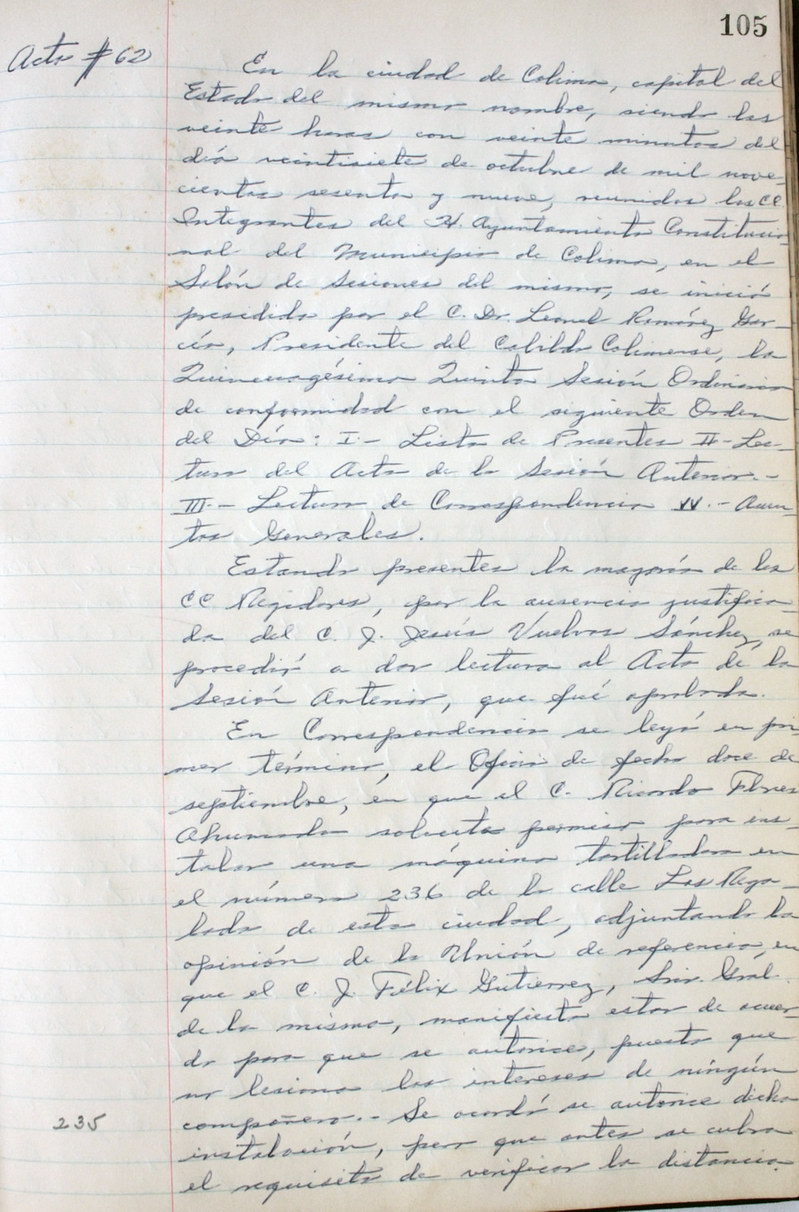 105
Acta # 62
En la ciudad de Colima, capital del
Estado del mismo nombre, siendo las
veinte horas con veinte minutos del
día veintisiete de octubre de mil nove-
cientos sesenta y nueve, reunidos los CC
Integrantes del H Ayuntamiento Constitucio
nal del Municipio de Colima, en el
Salón de Sesiones del mismo, se inició
presidida por el C. Dr. Leonel Ramírez Gar-
cía, Presidente del Cabildo Colimense, la
Quincuagésima Quinta Sesión Ordinaria
de conformidad con el siguiente Orden
del Día: I.- Lista de Presentes II- Lec-
tura del Acta de la Sesión Anterior.-
III.- Lectura de Correspondencia IV.- Asun-
tos Generales.
Estando presentes la mayoría de los
CC Regidores, por la ausencia justifica-
da del C. J. Jesús Vuelvas Sánchez, se
procedió a dar lectura al Acta de la
Sesión Anterior, que fué aprobada.
En Correspondencia se leyó en pri
mer término, el Oficio de fecha doce de
septiembre, en que el C. Ricardo Flores
Ahumada solicita permiso para ins-
talar una máquina tortilladora en
el número 236 de la calle Los Rega-
lado de esta ciudad, adjuntando la
opinión de la Unión de referencia, en
que el C. J. Félix Gutierrez, Srio. Gral.
de la misma, manifiesta estar de acuer-
do para que se autorice, puesto que
no lesiona los intereses de ningún
compañero.- Se acordó se autorice dicha
235
instalación, pero que antes se cubra
el requisito de verificar la distancia.